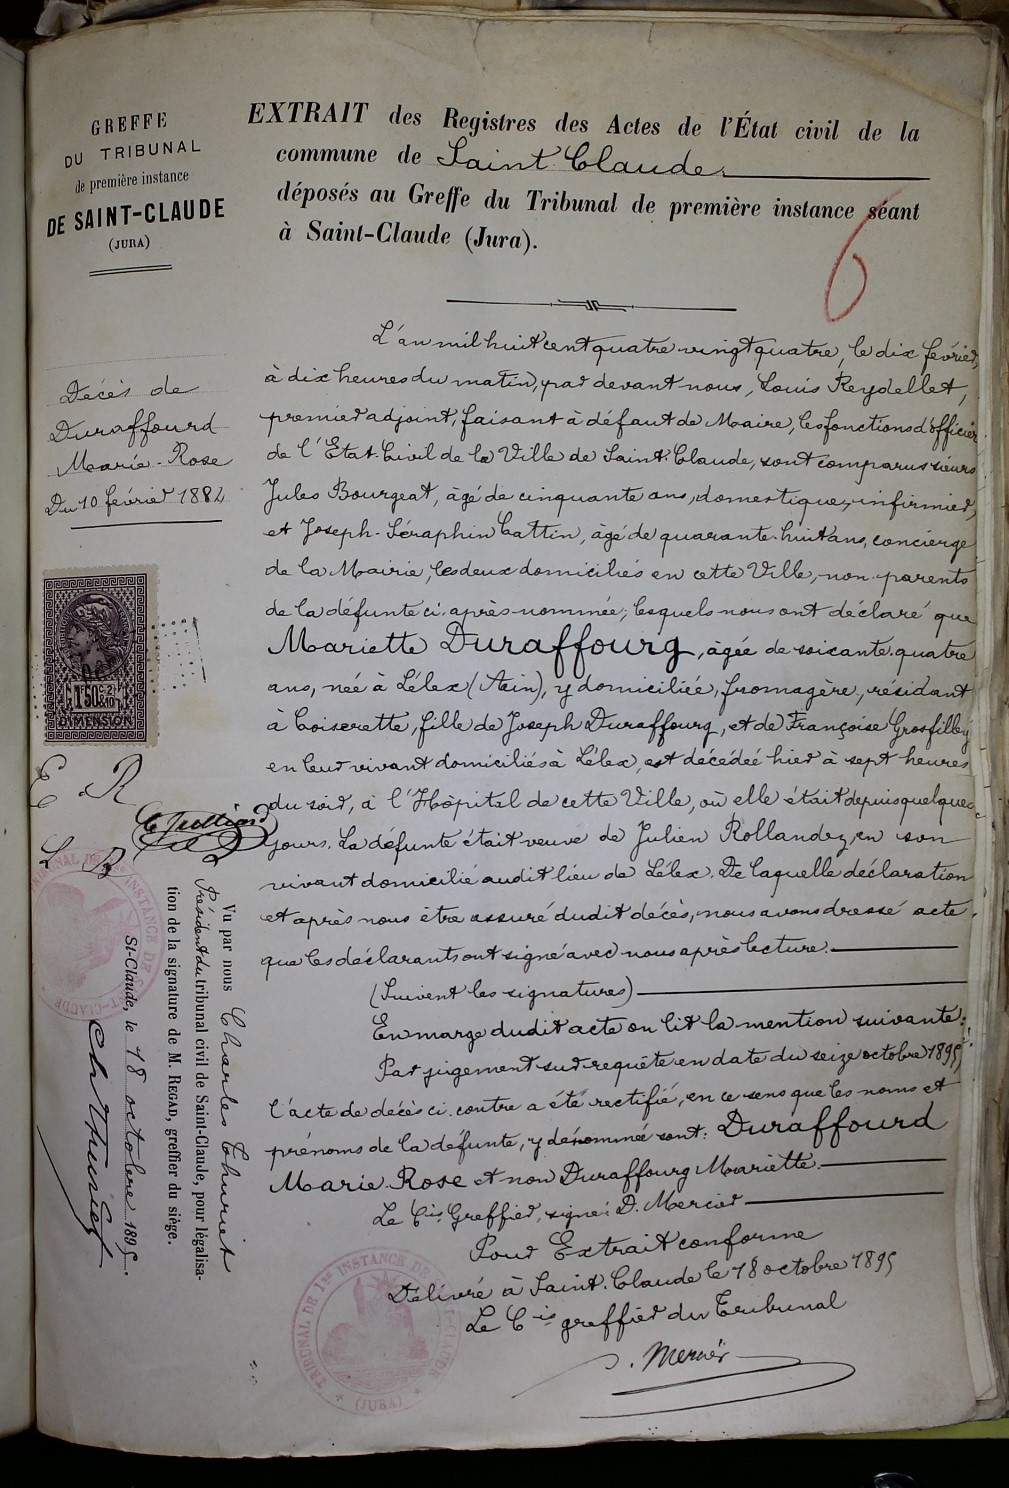 GREFFE
DU TRIBUNAL
de première instance
DE SAINT-CLAUDE
(JURA)
EXTRAIT des Registres des Actes de l'État civil de la
commune de Saint-Claude
déposés au Greffe du Tribunal de première instance séant
à Saint-Claude (Jura).
6
Décès de
Duraffourd
Marie-Rose
Du 10 février 1884
L'an mil huit cent quatre vingt quatre, le dix février,
à dix heures du matin, par devant nous, Louis Reydellet,
premier adjoint, faisant à défaut de Maire, les fonctions d'officier
de l'Etat-Civil de la Ville de Saint-Claude, sont comparus sieurs
Jules Bourgeat, âgé de cinquante ans, domestique-infirmier,
et Joseph-Séraphin Cattin, âgé de quarante-huit ans, concierge
de la Mairie, les deux domiciliés en cette Ville, non-parents
de la défunte ci-après-nommée, lesquels nous ont déclaré que
Mariette Duraffourg, âgée de soixante-quatre
ans, née à Lélex (Ain), y domiciliée, fromagère, résidant
à Coiserette, fille de Joseph Duraffourg, et de Françoise Grosfilley
en leur vivant domiciliés à Lélex, est décédée hier à sept heures
du soir, à l'Hôpital de cette Ville, où elle était depuis quelques
jours. La défunte était veuve de Julien Rollandez, en son
vivant domicilié audit lieu de Lélex. De laquelle déclaration
et après nous être assuré dudit décès, nous avons dressé acte
que les déclarants ont signé avec nous après lecture.
(Suivent les signatures)
En marge dudit acte on lit la mention suivante:
Par jugement sur requête en date du seize octobre 1895,
l'acte de décès ci-contre a été rectifié, en ce sens que les noms et
prénoms de la défunte, y dénommée sont: Duraffourd
Marie-Rose et non Duraffourg Mariette.
Le Cis Greffier, signé: D. Mercier
Pour Extrait conforme
Délivré à Saint-Claude le 18 octobre 1895
Le Cis greffier du Tribunal
D. Mercier
1f50c
DIMENSION
E. R
L B
Vu par nous Charles Thuriet
Président du tribunal civil de Saint-Claude, pour légalisa-
tion de la signature de M. REGAD, greffier du siège.
St-Claude, le 18 octobre 1895.
Ch Thuriet
TRIBUNAL DE 1re INSTANCE DE ST-CLAUDE
TRIBUNAL DE 1re INSTANCE DE ST-CLAUDE
(JURA)